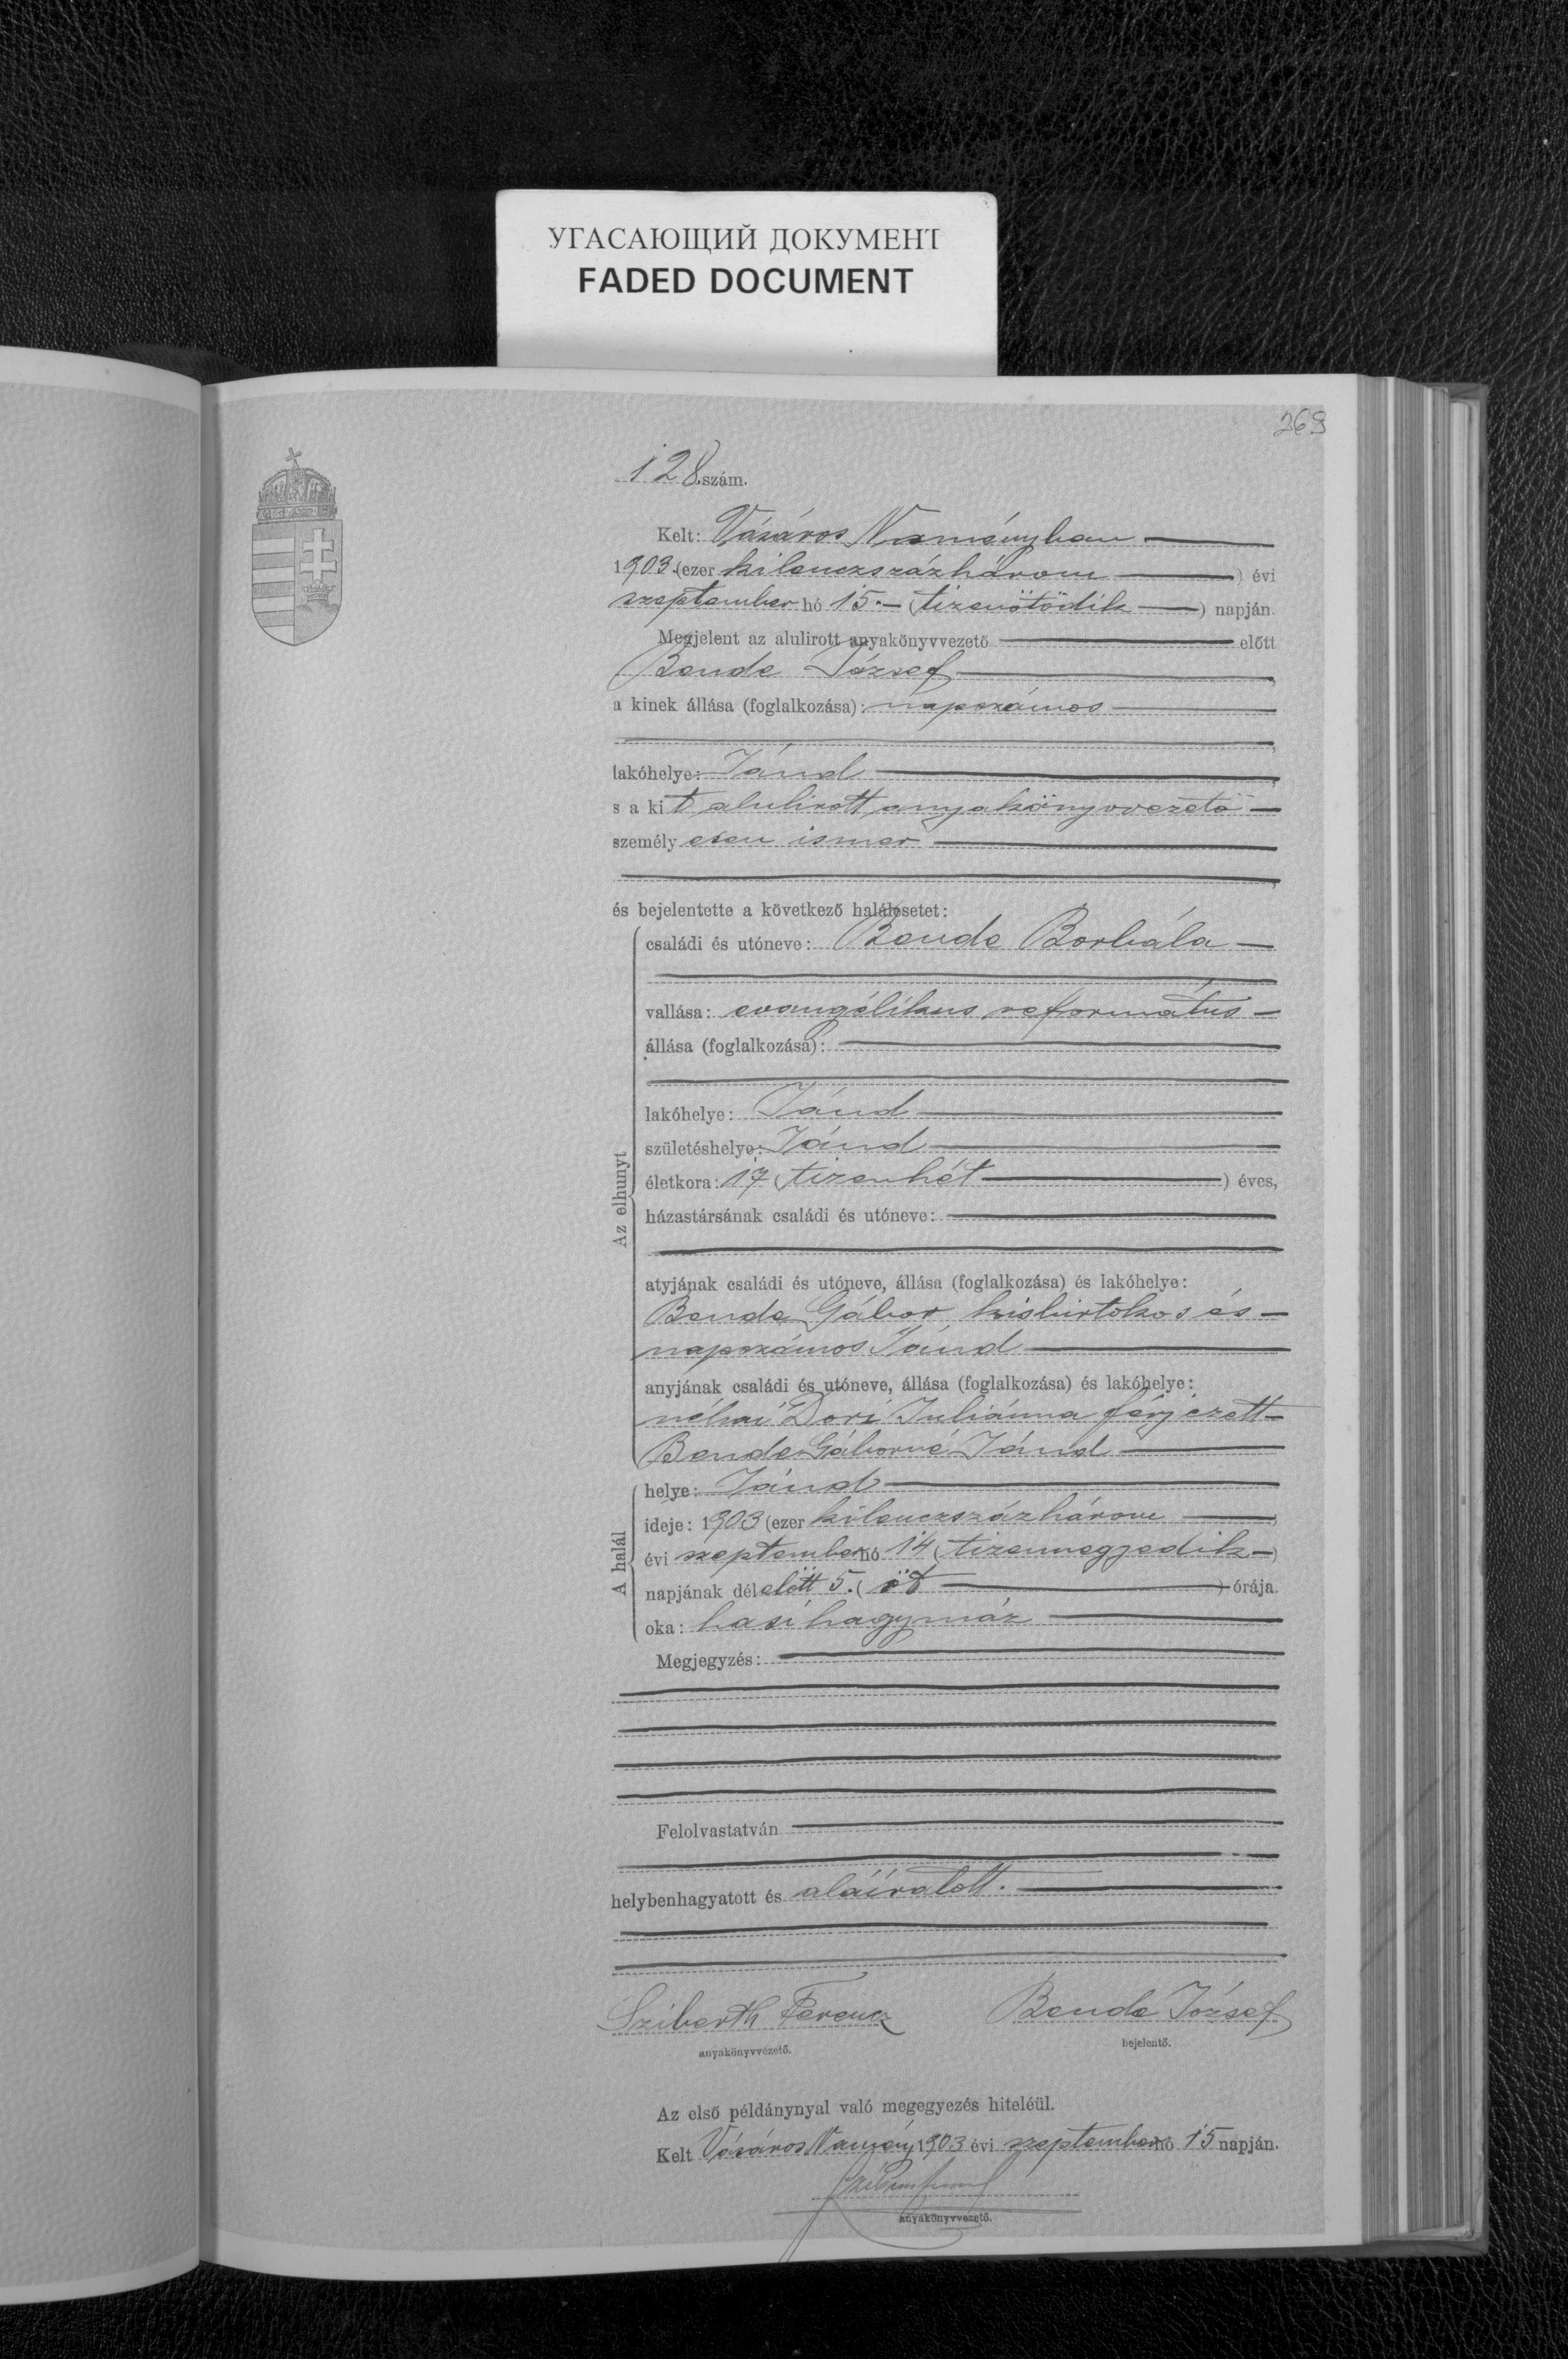 УГАСАЮЩИЙ ДОКУМЕНТ
FADED DOCUMENT
269
128. szám.
Kelt: Vásáros Naményban
1903. (ezer kilenczszázhárom) évi
szeptember hó 15. (tizenötödik) napján.
Megjelent az alulirott anyakönyvvezető előtt
Bende József,
a kinek állása (foglalkozása): napszámos,
lakóhelye: Jánd,
s a kit alulirott anyakönyvvezető
személyesen ismer,
és bejelentette a következő halálesetet:
Az elhunyt
családi és utóneve: Bende Borbála
vallása: evangélikus református
állása (foglalkozása):
lakóhelye: Jánd
születéshelye: Jánd
életkora: 17 (tizenhét) éves,
házastársának családi és utóneve:
atyjának családi és utóneve, állása (foglalkozása) és lakóhelye:
Bende Gábor kisbirtokos és
napszámos Jánd
anyjának családi és utóneve, állása (foglalkozása) és lakóhelye:
néhai Dori Juliánna férjezett
Bende Gáborné Jánd
A halál
helye: Jánd
ideje: 1903 (ezer kilenczszázhárom)
évi szeptember hó 14 (tizennegyedik)
napjának délelőtt 5. (öt) órája.
oka: hasi hagymáz
Megjegyzés:
Felolvastatván
helybenhagyatott és aláiratott.
Sziberth Ferencz
anyakönyvvezető.
Bende József
bejelentő.
Az első példánynyal való megegyezés hiteléül.
Kelt Vásáros Namény 1903 évi szeptember hó 15 napján.
anyakönyvvezető.